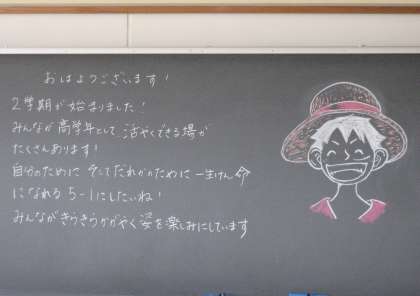 おはようございます!
2学期が始まりました!
みんなが高学年として活やくできる場が
たくさんあります!
自分のために そしてだれかのために 一生けん命
になれる5-1にしたいね!
みんながきらきらかがやく姿を楽しみにしています